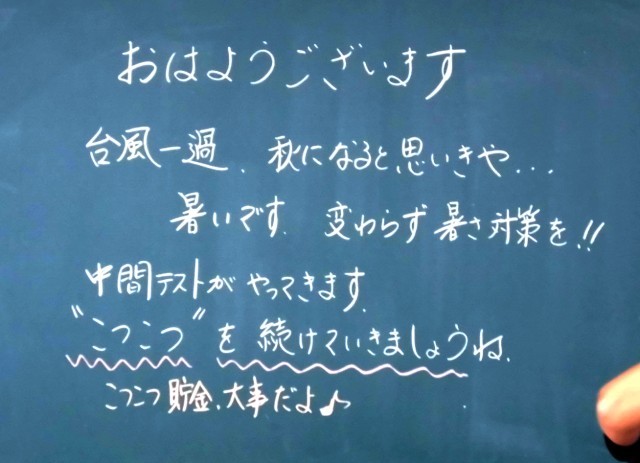 おはようございます
台風一過、秋になると思いきや...
暑いです。変わらず暑さ対策を!!
中間テストがやってきます。
"こつこつ"を続けていきましょうね。
こつこつ貯金、大事だよ♪